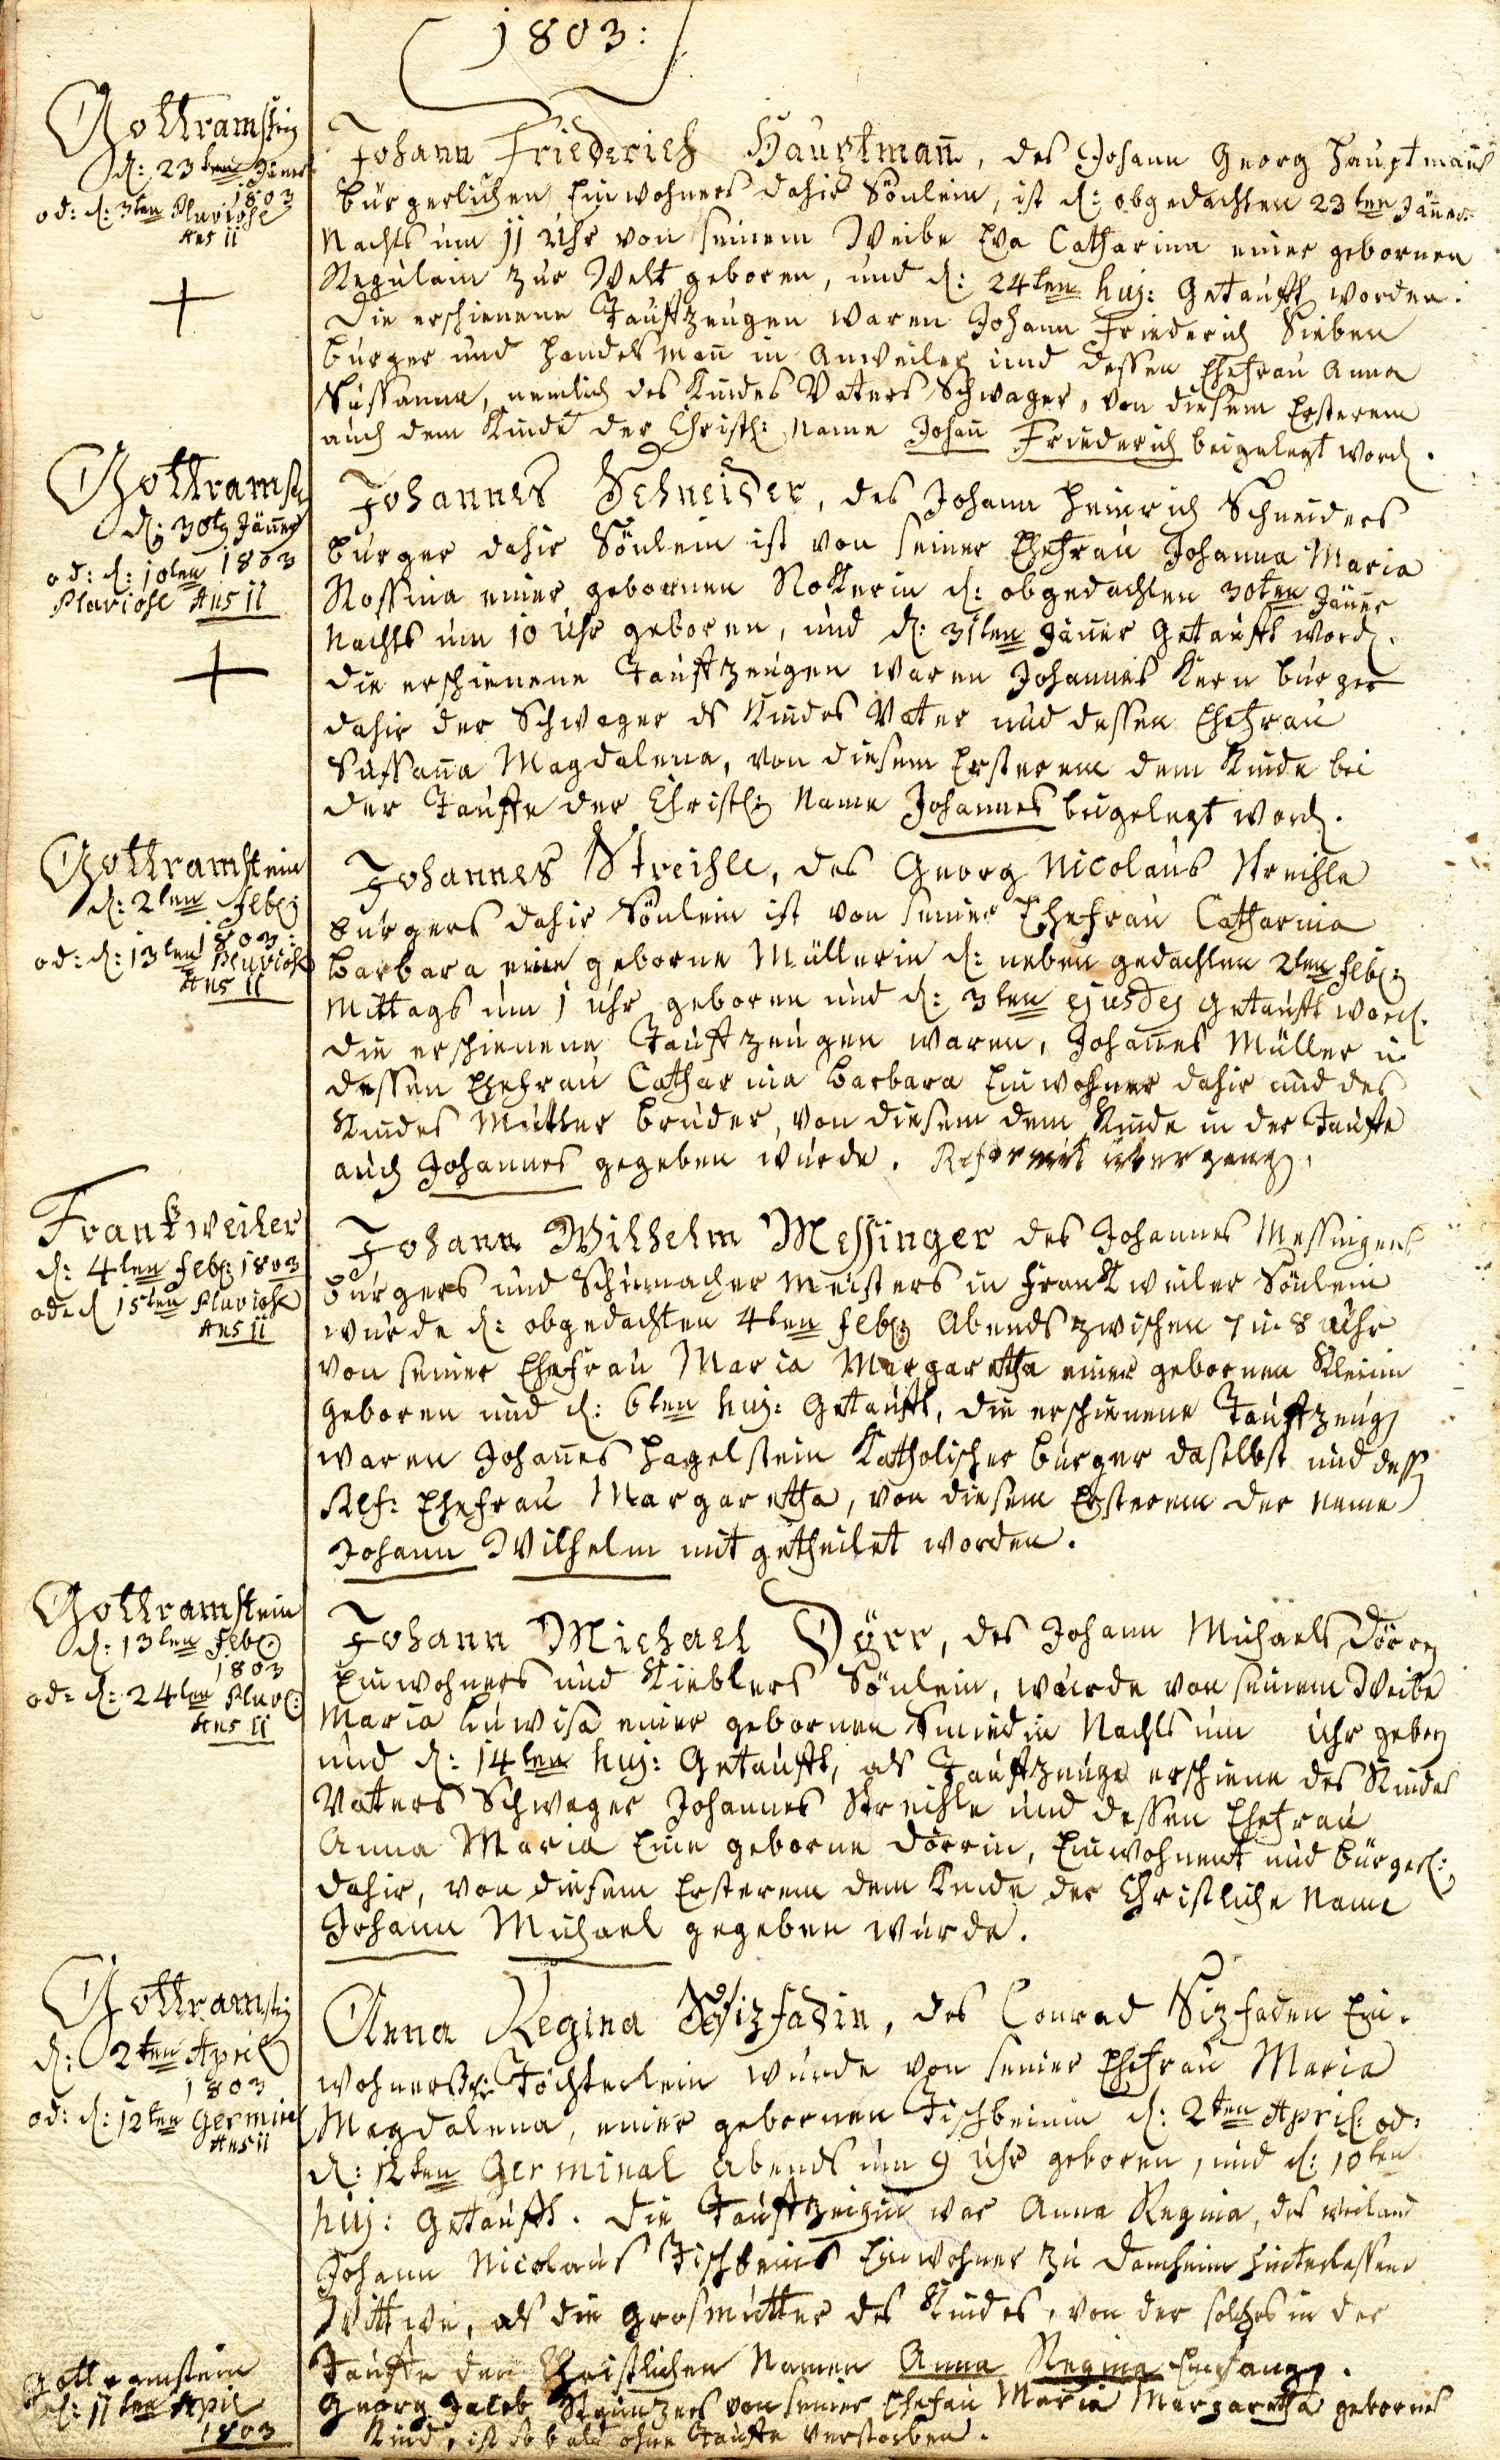 1803:
Gottramstein
d: 23ten Jäner
1803
od: d: 3ten Pluviose
Ans 11
Johann Friederich Hauptmann, des Johann Georg Hauptmanns
bürgerlichen Einwohners dahir Sönlein, ist d: obgedachten 23ten Jäner
Nachts um 11 Uhr von seinem Weibe Eva Catharina einer gebornen
Regulain zur Welt geboren, und d: 24ten huj: Getaufft worden.
Die erschienene Tauffzeugen waren Johann Friederich Sieben
bürger und Handelsman in Anweiler und dessen Ehefrau Anna
Sussanna, nemlich des Kindes Vaters Schwager, von diesem Ersterem
auch dem Kinde der Christl: Name Johan Friederich beigelegt word.
Gottramst
d: 30tn Jäner
1803
od: d: 10ten
Pluviose Ans 11
Johannes Schneider, des Johann Heinrich Schneiders
bürger dahir Sönlein ist von seiner Ehefrau Johanna Maria
Rossina einer gebornen Notterin d: obgedachten 30ten Jäner
Nachts um 10 Uhr geboren, und d: 31ten Jäner Getaufft word.
Die erschienene Tauffzeugen waren Johannes Kern bürger
dahir der Schwager ds Kindes Vater und dessen Ehefrau
Sussana Magdalena, von diesem Ersterem dem Kinde bei
der Tauffe der Christl: Name Johannes beigelegt word.
Gottramstein
d: 2ten Feb:
1803:
od: d: 13ten Pluviose
Ans 11
Johannes Streihle, des Georg Nicolaus Streihle
bürgers dahir Sönlein ist von seiner Ehefrau Catharina
Barbara eine geborne Müllerin d: neben gedachten 2ten Feb:
Mittags um 1 Uhr geboren und d: 3ten ejusdem Getaufft word.
Die erschienene Tauffzeugen waren, Johanes Müller u.
dessen Ehefrau Catharina Barbara Einwohner dahir und des
Kindes Mutter bruder, von diesem dem Kinde in der Tauffe
auch Johannes gegeben wurde.
Frankweiler
d: 4ten Feb: 1803
od: d 15ten Pluviose
Ans 11
Johann Wilhelm Messinger des Johannes Messingers
bürgers und Schumacher Meisters in Frankweiler Sönlein
wurde d: obgedachten 4ten Feb: Abends zwischen 7 u. 8 Uhr
von seiner Ehefrau Maria Margaretha einer gebornen Kleinin
geboren und d: 6ten huj: Getaufft, die erschienene Tauffzeug
waren Johanes Hagelstein Katholischer bürger daselbst und dess
Ref: Ehefrau Margaretha, von diesem Ersterem der Name
Johann Wilhelm mit getheilet worden.
Gottramstein
d: 13ten Feb:
1803
od: d: 24ten Pluv:
Ans 11
Johann Michael Dörr, des Johann Michaels Dörrn
Einwohners und Kieblers Sönlein, wurde von seinem Weibe
Maria Luwisa einer gebornen Smiedin Nachts um Uhr gebon
und d: 14ten huj: Getaufft, als Tauffzeuge erschiene des Kindes
Vaters Schwager Johannes Streihle und dessen Ehefrau
Anna Maria Eine geborne Dörrin, Einwohnent und bürgerl:
dahir, von diesem Ersterem dem Kinde der Christliche Name
Johann Michael gegeben wurde.
Gottramstein
d: 2ten April
1803
od: d: 12ten Germinl
Ans 11
Anna Regina Sizfadin, des Conrad Sizfaden Ein-
wohners Töchterlein wurde von seiner Ehefrau Maria
Magdalena, einer gebornen Fischbeinin d: 2ten April: od:
d: 12ten Germinal Abends um 9 Uhr geboren, und d: 10ten
huj: Getaufft. Die Tauffzeigin war Anna Regina, des weiland
Johann Nicolaus Fischbeins Einwohner zu Damheim hinterlassene
Wittwe, als die Grosmutter des Kindes, von der solches in der
Tauffe den Christlichen Namen Anna Regina Empfangn.
Gottramstein
d: 11ten April
1803
Georg Jacob von seiner Ehefrau Maria Margaretha gebornes
Kind, ist so bald ohne Tauffe verstorben.